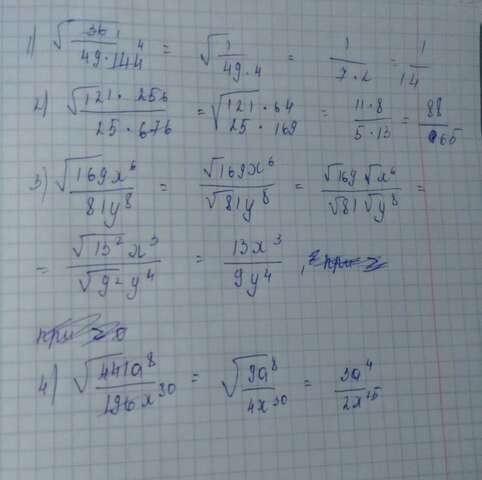 1) √36/(49·144) = √1/(49·4) = 1/(7·2) = 1/14
2) √(121·256)/(25·676) = √(121·64)/(25·169) = (11·8)/(5·13) = 88/65
3) √169x⁶/81y⁸ = √169x⁶/√81y⁸ = √169 √x⁶/√81 √y⁸ =
= √13² x³/√9² y⁴ = 13x³/9y⁴,
4) √441a⁸/196x³⁰ = √9a⁸/4x³⁰ = 3a⁴/2x¹⁵